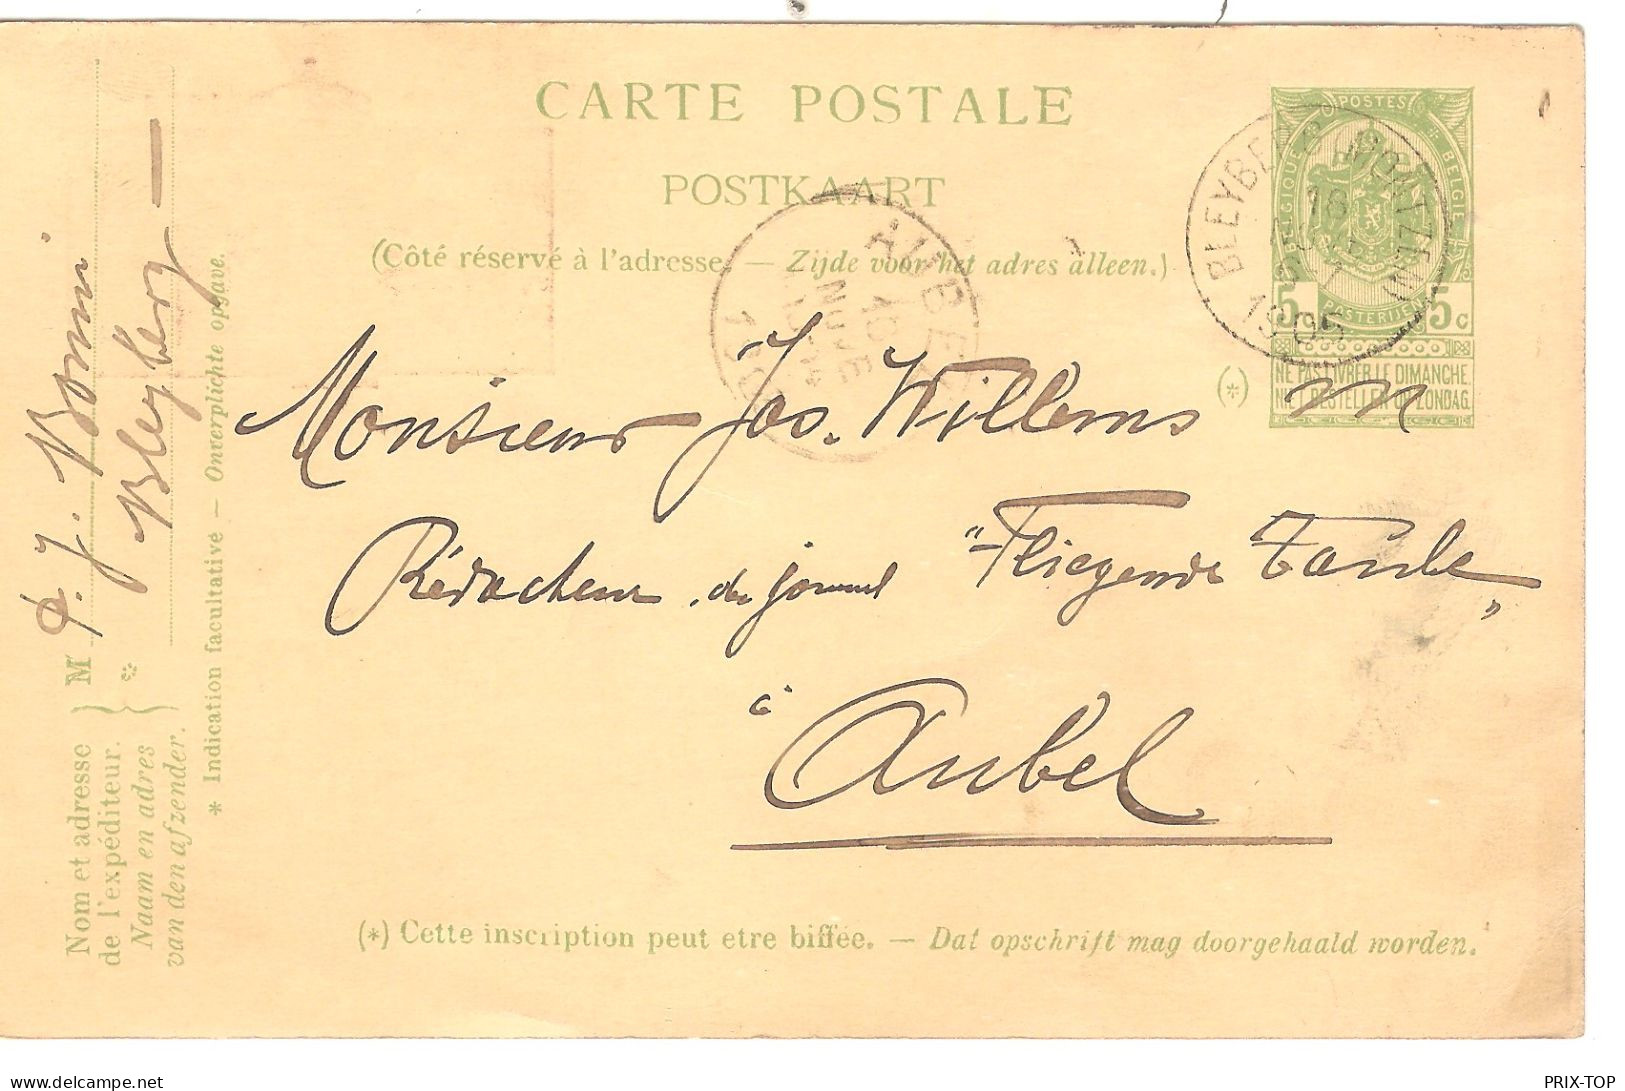 CARTE POSTALE
POSTKAART
(Côté réservé à l'adresse. — Zijde voor het adres alleen.)
POSTES
BELGIQUE BELGIË
POSTERIJEN
5c 5c
NE PAS LIVRER LE DIMANCHE.
NIET BESTELLEN OP ZONDAG.
(*)
BLEYBERG MONTZEN
16
1905
AUBEL
Monsieur Jos. Willems
Rédacteur du journal "Fliegende Taube"
à
Aubel
(*) Cette inscription peut etre biffée. — Dat opschrift mag doorgehaald worden.
Nom et adresse
de l'expéditeur.
Naam en adres
van den afzender.
M
*
J. Bonni
Bleyberg —
* Indication facultative — Onverplichte opgave.
www.delcampe.net
PRIX-TOP